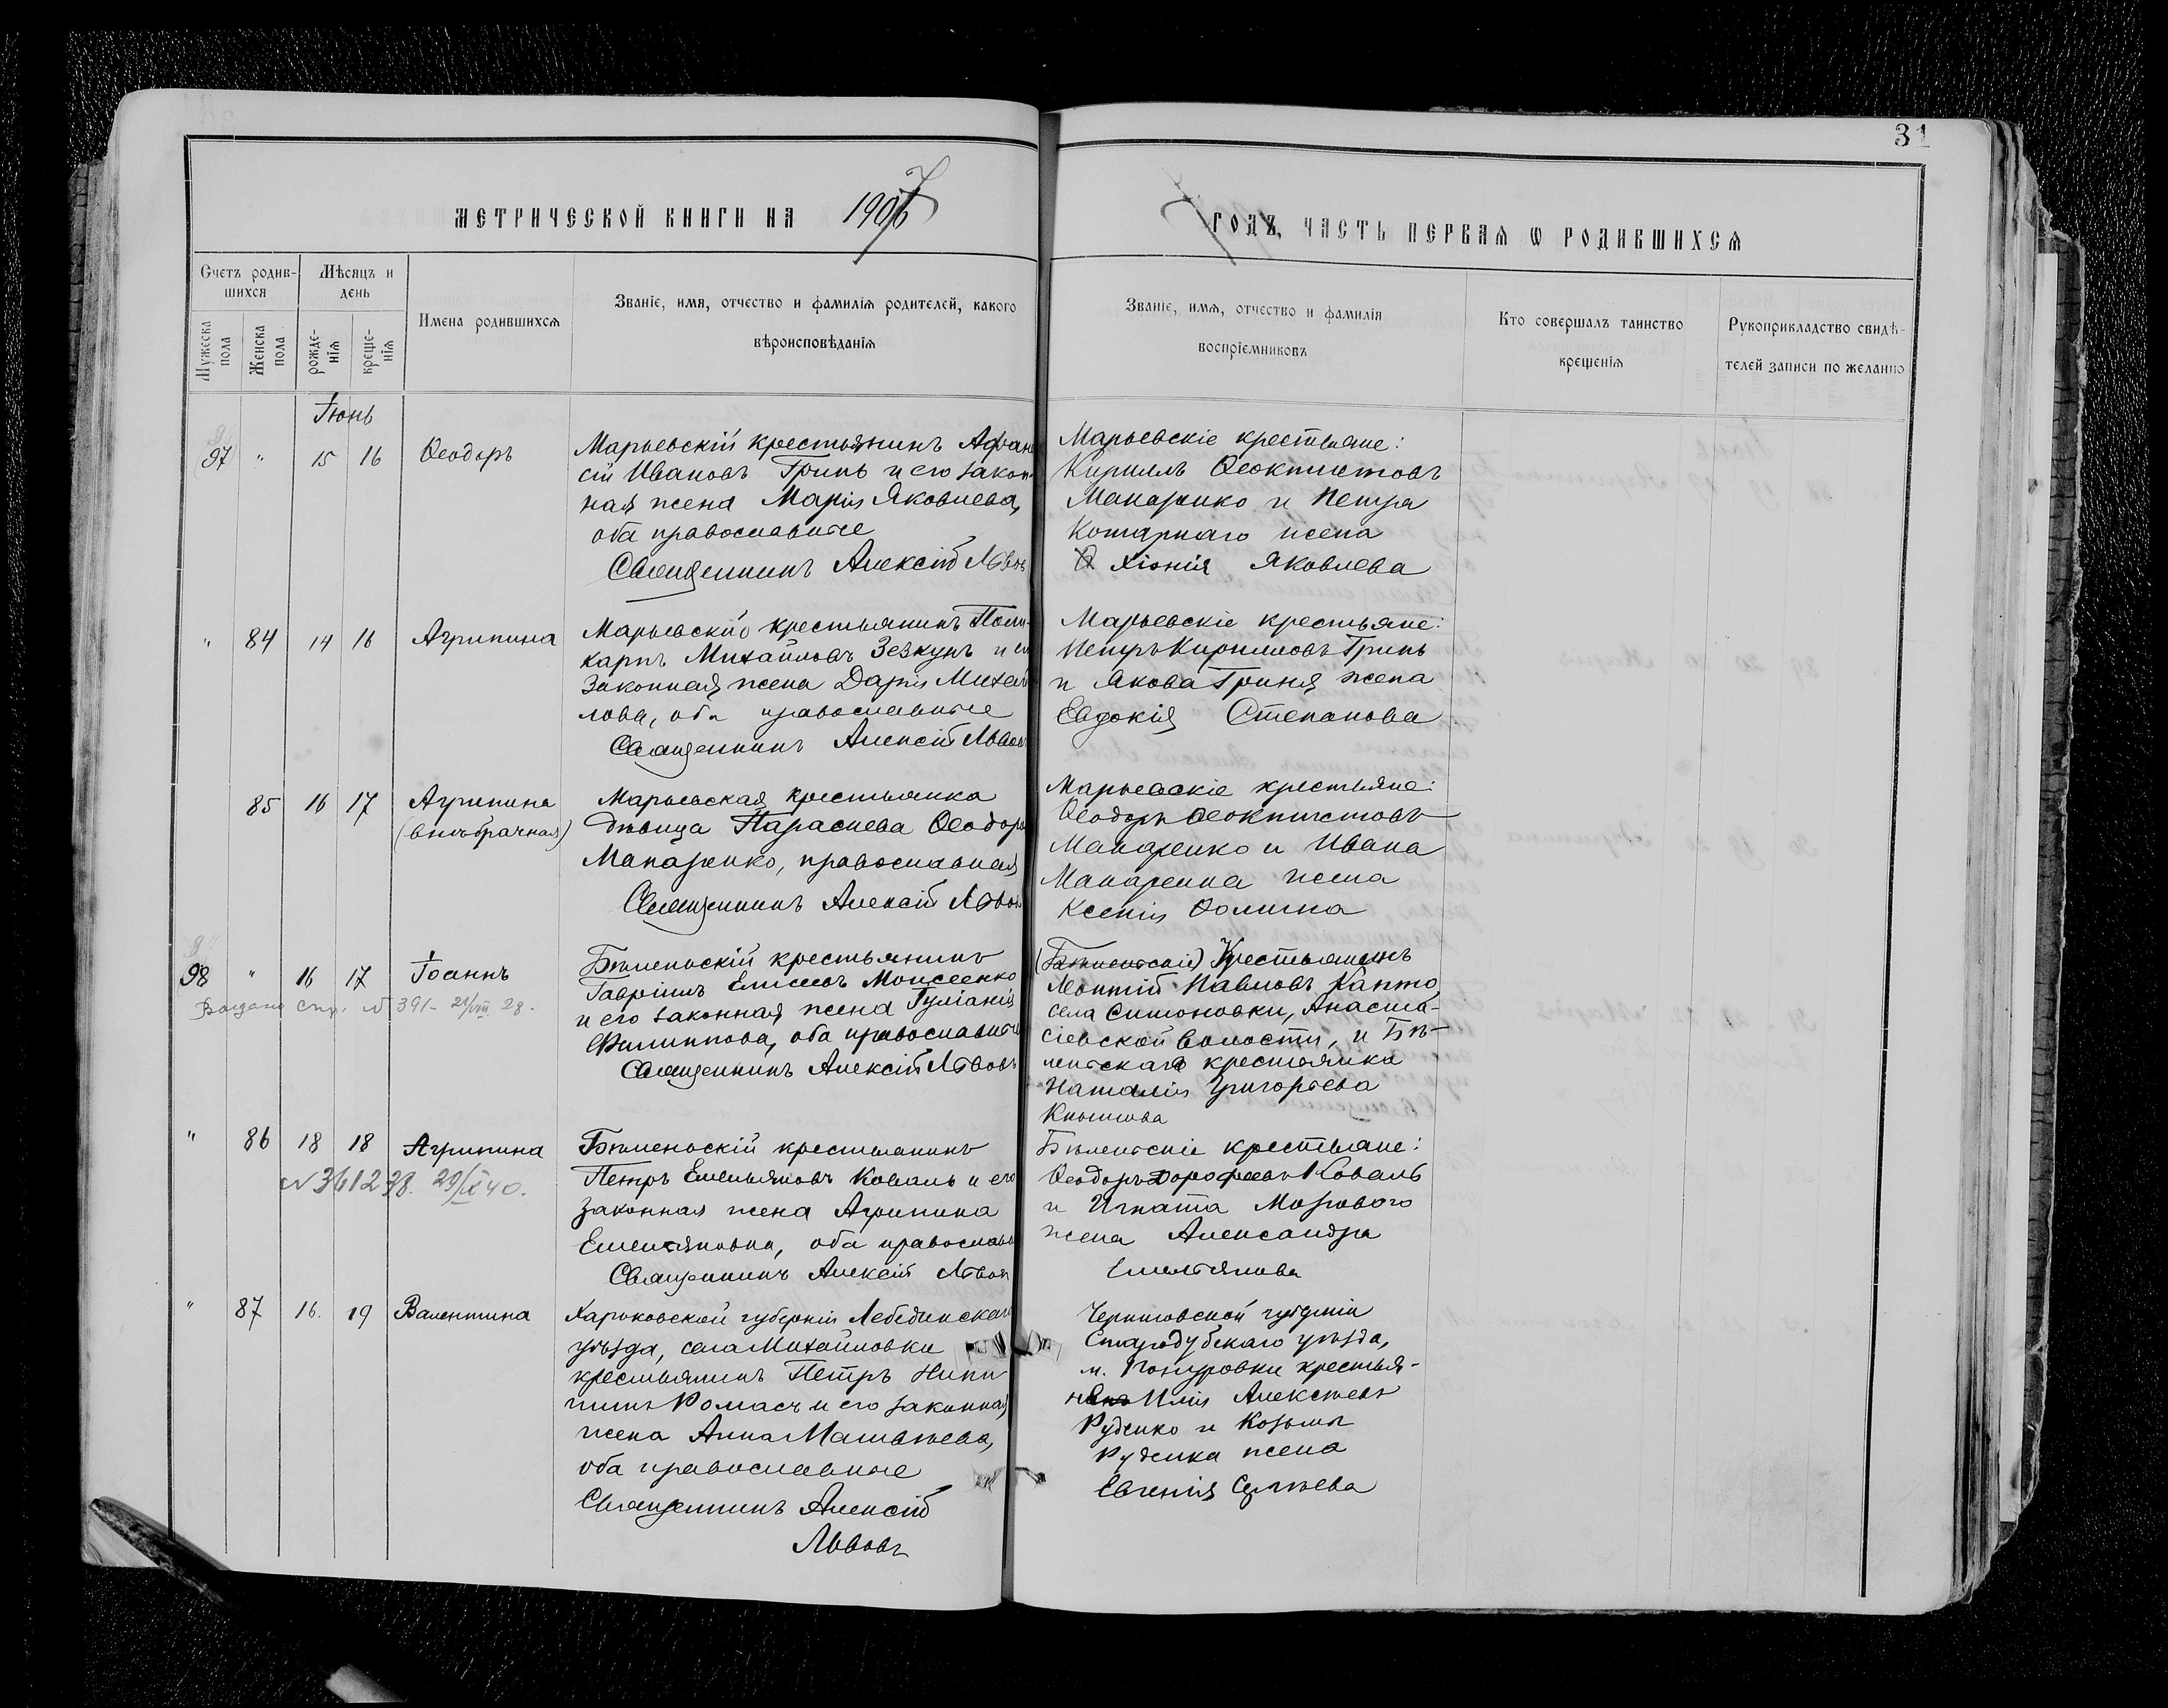 31
МЕТРИЧЕСКОЙ КНИГИ НА 1907
ГОДЪ, ЧАСТЬ ПЕРВАЯ Ѡ РОДИВШИХСЯ
Счетъ родив-
шихся
Мѣсяцъ и
день
Имена родившихся
Званіе, имя, отчество и фамилія родителей, какого
вѣроисповѣданія
Мужеска
пола
Женска
пола
рожде-
нія
креще-
нія
Званіе, имя, отчество и фамилія
воспріемниковъ
Кто совершалъ таинство
крещенія
Рукоприкладство свидѣ-
телей записи по желанію
Іюнь
97 " 15 16 Ѳеодоръ
Марьевскій крестьянинъ Афана
сій Ивановъ Гринь и его закон-
ная жена Марія Яковлева,
оба православные
Священникъ Алексій Львов
Марьевскіе крестьяне:
Кириллъ Ѳеоктистовъ
Макаренко и Петра
жена
Хіонія Яковлева
" 84 14 16 Агрипина
Марьевскій крестьянинъ Поли-
карпъ Михайловъ Зезкунъ и
законная жена Дарія Михай
лова, оба православные
Священникъ Алексій Львов
Марьевскіе крестьяне:
Петръ Кирилловъ Гринь
и Якова Гриня жена
Евдокія Степанова
85 16 17 Агрипина
(внѣбрачная)
Марьевская крестьянка
дѣвица Параскева Ѳеодоро
Макаренко, православная
Священникъ Алексій Львов
Марьевскіе крестьяне:
Ѳеодоръ Ѳеоктистовъ
Макаренко и Ивана
Макаренка жена
Ксенія Ѳомина
98 " 16 17 Іоаннъ
Видано спр. № 391 - 21/VIII 28.
Бѣленьскій крестьянинъ
Гавріилъ Елисеевъ Моисеенко
и его законная жена Іуліанія
Филиппова, оба православные
Священникъ Алексій Львовъ
(Бѣленьскіе) Крестьянинъ
Леонтій Павловъ Капто
села Симоновки, Анаста-
сіевской волости, и Бѣ-
леньская крестьянка
Наталія Григорьева
" 86 18 18 Агрипина
№ 361238. 29/IX 40.
Бѣленьскій крестьянинъ
Петръ Емельяновъ Коваль и его
законная жена Агрипина
Емельяновна, оба православн
Священникъ Алексій Львов
Бѣленьскіе крестьяне:
Ѳеодоръ Дорофеевъ Коваль
и Игната Мозгового
жена Александра
Емельянова
" 87 16. 19 Валентина
Харьковской губерніи Лебединскаго
уѣзда, села Михайловки
крестьянинъ Петръ Ники
тинъ Ромасъ и его законная
жена Анна Матвѣева,
оба православные
Священникъ Алексій
Львовъ
Черниговской губерніи
Стародубскаго уѣзда,
м. Понуровки крестья-
Илія Алексѣевъ
Руденко и Козьмы
Руденка жена
Евгенія Сергѣева